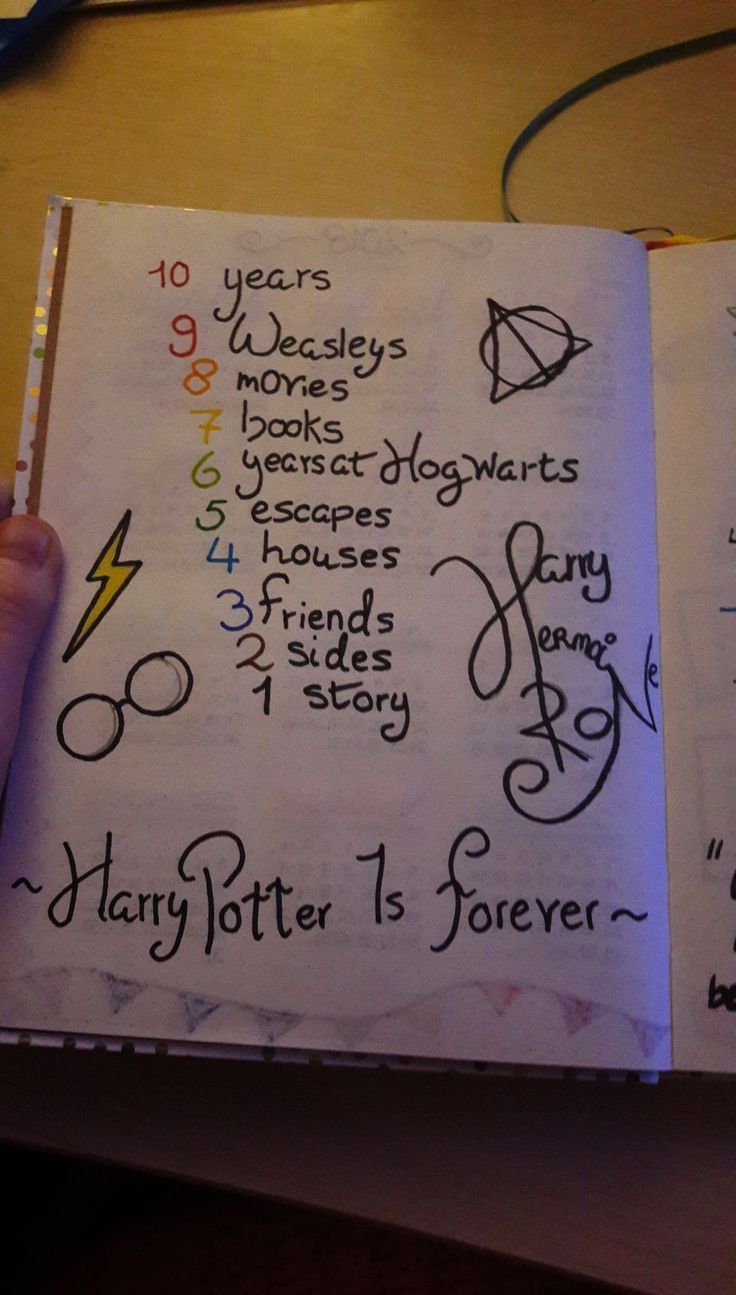 10 years
9 Weasleys
8 movies
7 books
6 years at Hogwarts
5 escapes
4 houses
3 friends
2 sides
1 story
Harry
HermoiNe
RoN
~Harry Potter Is forever~
"
be